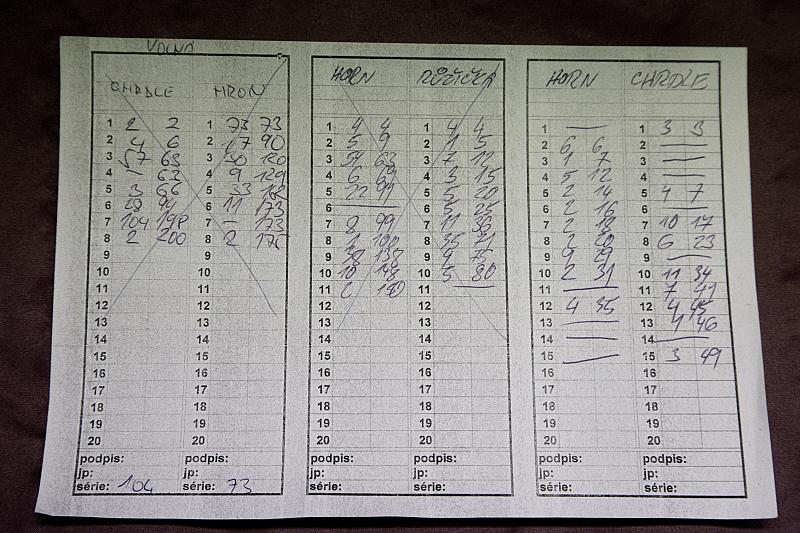 VOLNÁ
CHRDLE HRON
1 2 2 1 73 73
2 4 6 2 17 90
3 57 63 3 30 120
4 – 63 4 9 129
5 3 66 5 33 162
6 28 94 6 11 173
7 104 198 7 – 173
8 2 200 8 2 175
9 9
10 10
11 11
12 12
13 13
14 14
15 15
16 16
17 17
18 18
19 19
20 20
podpis: podpis:
jp: jp:
série: 104 série: 73
HORN RŮŽIČKA
1 4 4 1 4 4
2 5 9 2 1 5
3 54 63 3 7 12
4 6 69 4 3 15
5 22 91 5 5 20
6 — 6 5 25
7 8 99 7 11 36
8 1 100 8 35 71
9 38 138 9 4 75
10 10 148 10 5 80
11 2 150 11 —
12 12
13 13
14 14
15 15
16 16
17 17
18 18
19 19
20 20
podpis: podpis:
jp: jp:
série: série:
HORN CHRDLE
1 — 1 3 3
2 6 6 2 —
3 1 7 3 —
4 5 12 4 —
5 2 14 5 4 7
6 2 16 6 —
7 2 18 7 10 17
8 2 20 8 6 23
9 9 29 9 —
10 2 31 10 11 34
11 — 11 7 41
12 4 35 12 4 45
13 — 13 1 46
14 — 14 —
15 — 15 3 49
16 16
17 17
18 18
19 19
20 20
podpis: podpis:
jp: jp:
série: série: